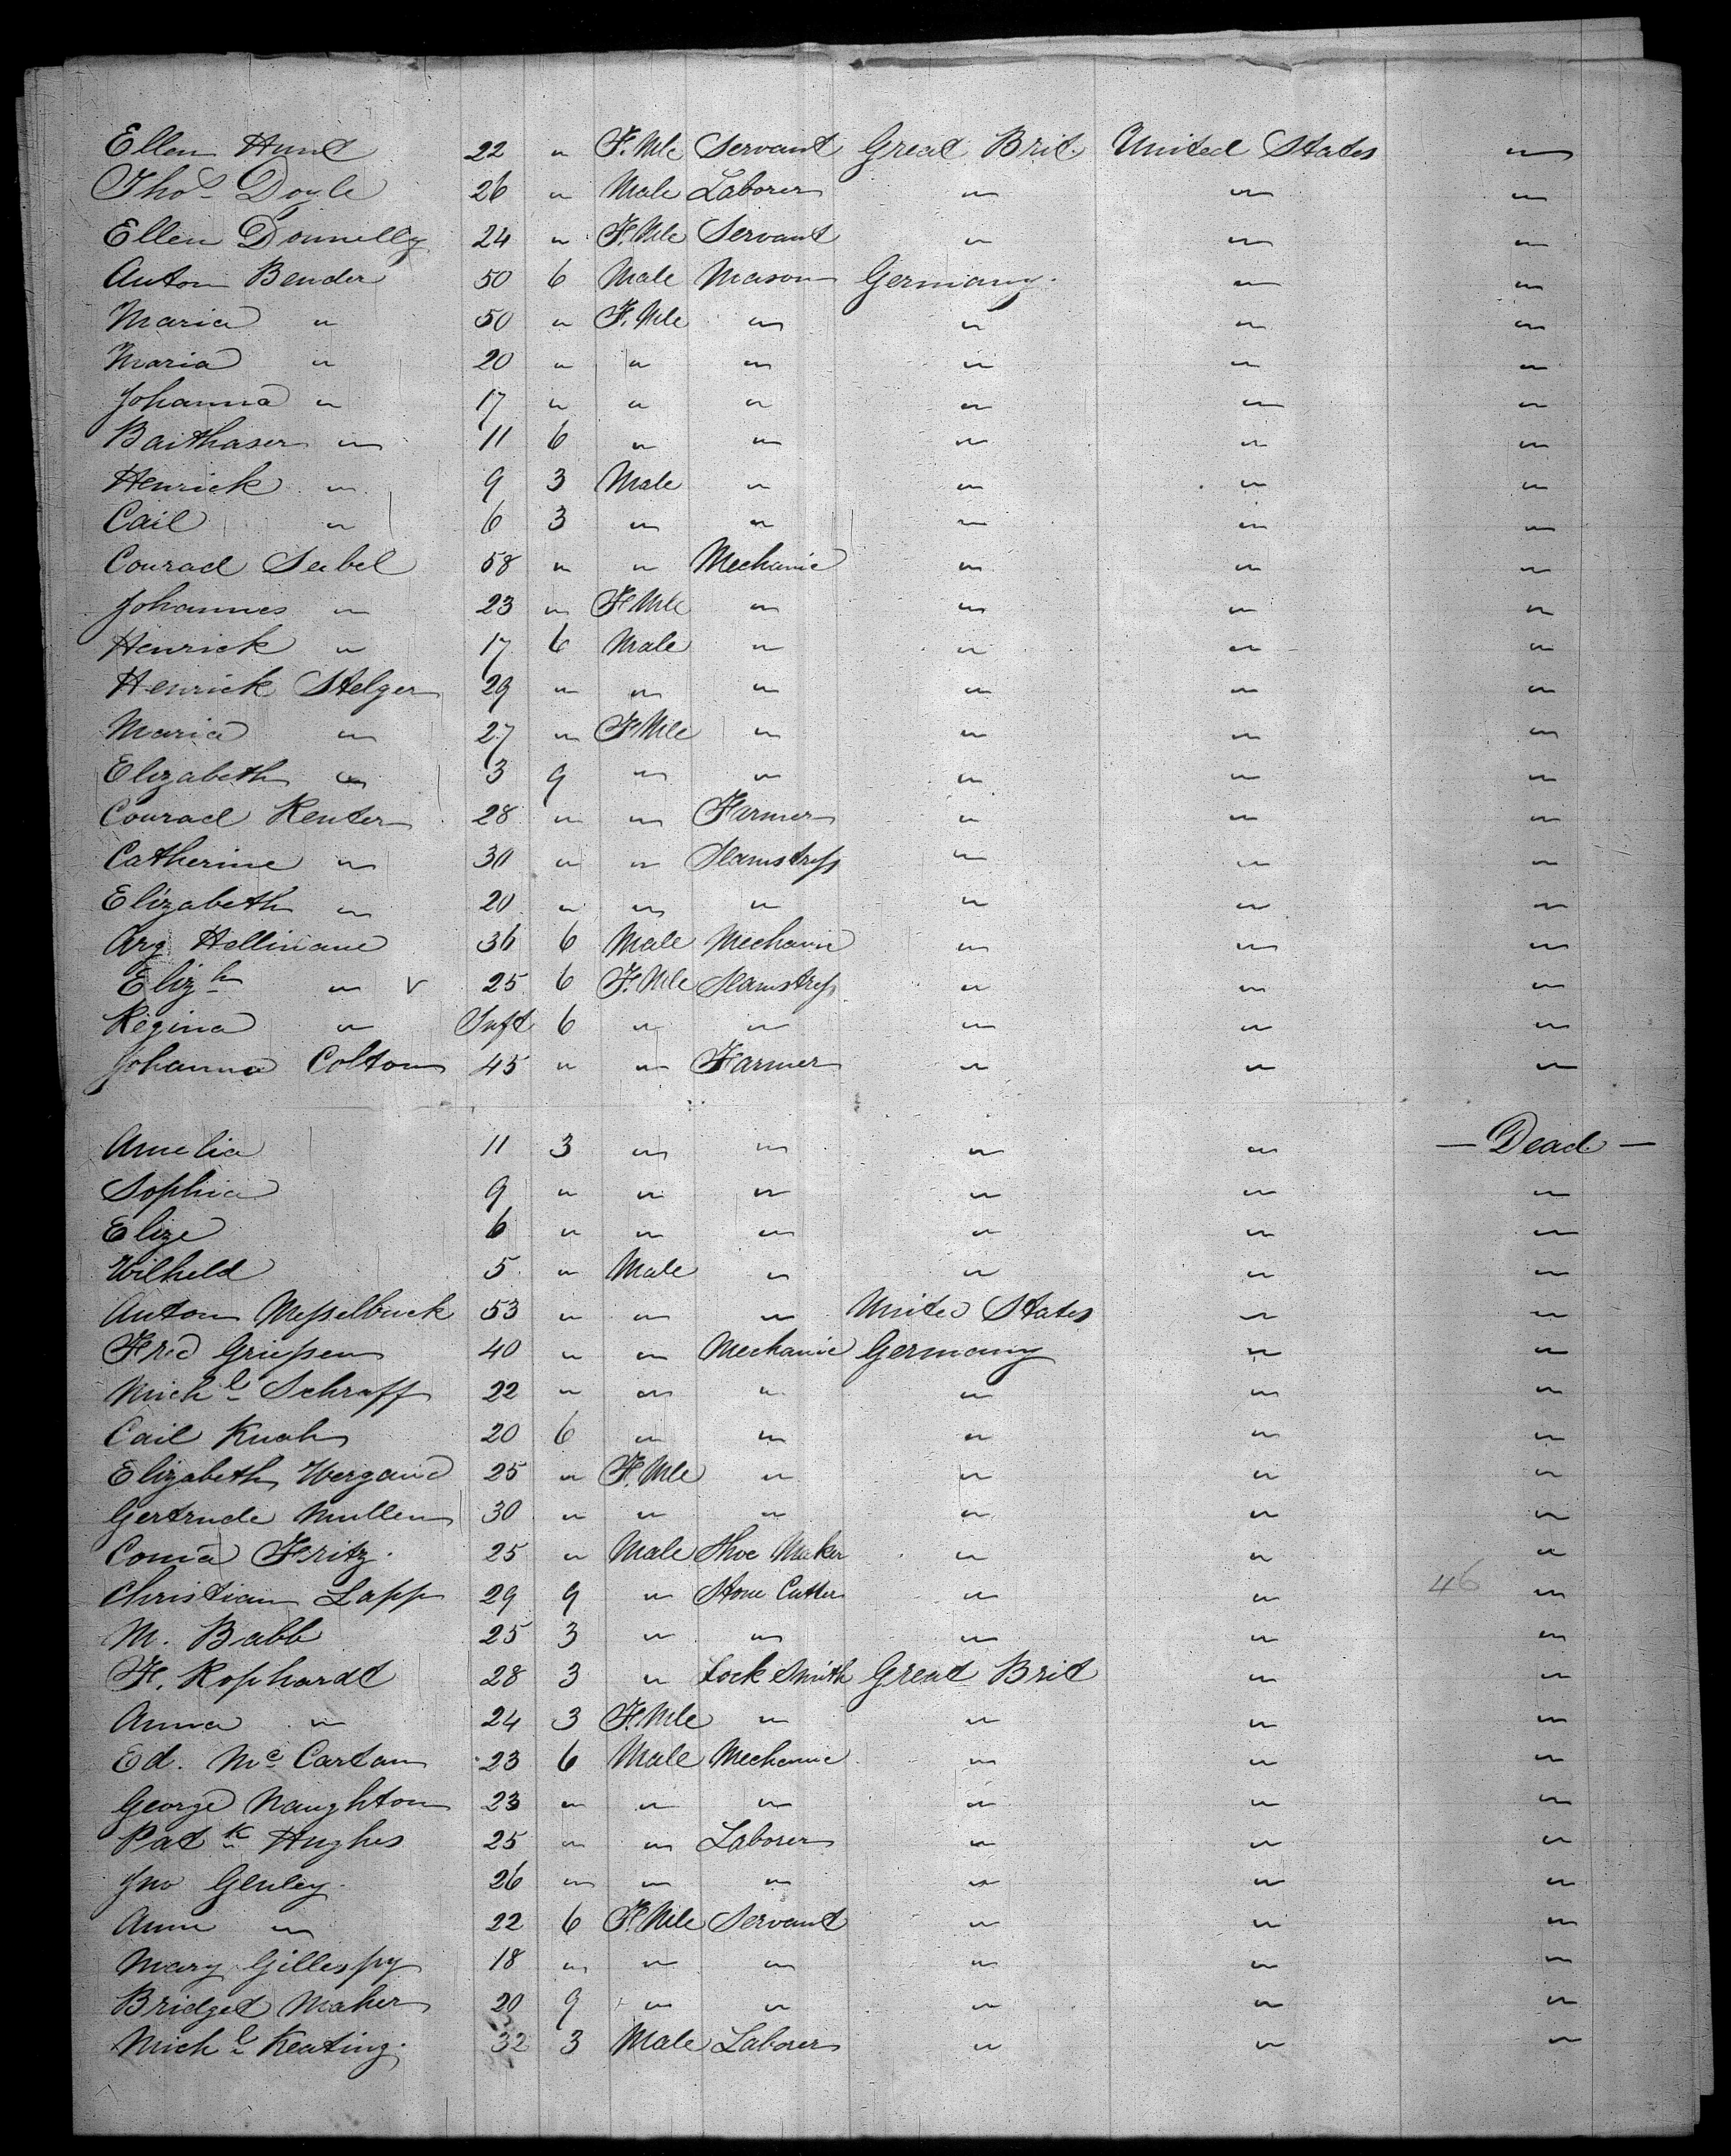 Ellen Hunt 22 " F.Mle Servant Great Brit. United States "
Thos Doyle 26 " Male Laborer " " "
Ellen Donnelly 24 " F.Mle Servant " " "
Anton Bender 50 6 Male Mason Germany. " "
Maria " 50 " F.Mle " " " "
Maria " 20 " " " " " "
Johanna " 17 " " " " " "
Baithaser " 11 6 " " " " "
Henrick " 9 3 Male " " " "
Cail " 6 3 " " " " "
Conrad Seibel 58 " " Mechanic " " "
Johannes " 23 " F Mle " " " "
Henrick " 17 6 Male " " " "
Henrick Stelger 29 " " " " " "
Maria " 27 " F Mle " " " "
Elizabeth " 3 9 " " " " "
Conrad Renter 28 " " Farmer " " "
Catherine " 30 " " Seamstress " " "
Elizabeth " 20 " " " " " "
Arg Hollinane 36 6 Male Mechanic " " "
Elizh " v 25 6 F.Mle Seamstress " " "
Regina " Inft 6 " " " " "
Johanna Colton 45 " " Farmer " " "
Amelia 11 3 " " " " — Dead —
Sophia 9 " " " " " "
Elize 6 " " " " " "
Wilheld 5 " Male " " " "
Anton Messelbuck 53 " " " United States " "
Fred Griessen 40 " " Mechanic Germany " "
Michl Schraff 22 " " " " " "
Cail Knah 20 6 " " " " "
Elizabeth Wergand 25 " F.Mle " " " "
Gertrude Mullen 30 " " " " " "
Fritz. 25 " Male Shoe Maker " " "
Christian Lapp 29 9 " Stone Cutter " " 46 "
M. Babb 25 3 " " " " "
F. Rophardt 28 3 " Lock Smith Great Brit " "
Anna " 24 3 F.Mle " " " "
Ed. Mc Cartan 23 6 Male Mechanic " " "
George Naughton 23 " " " " " "
Patk Hughes 25 " " Laborer " " "
Jno Glenley. 26 " " " " " "
Ann " 22 6 F.Mle Servant " " "
Mary Gillespy 18 " " " " " "
Bridget Maher 20 9 " " " " "
Michl Keating. 32 3 Male Laborer " " "